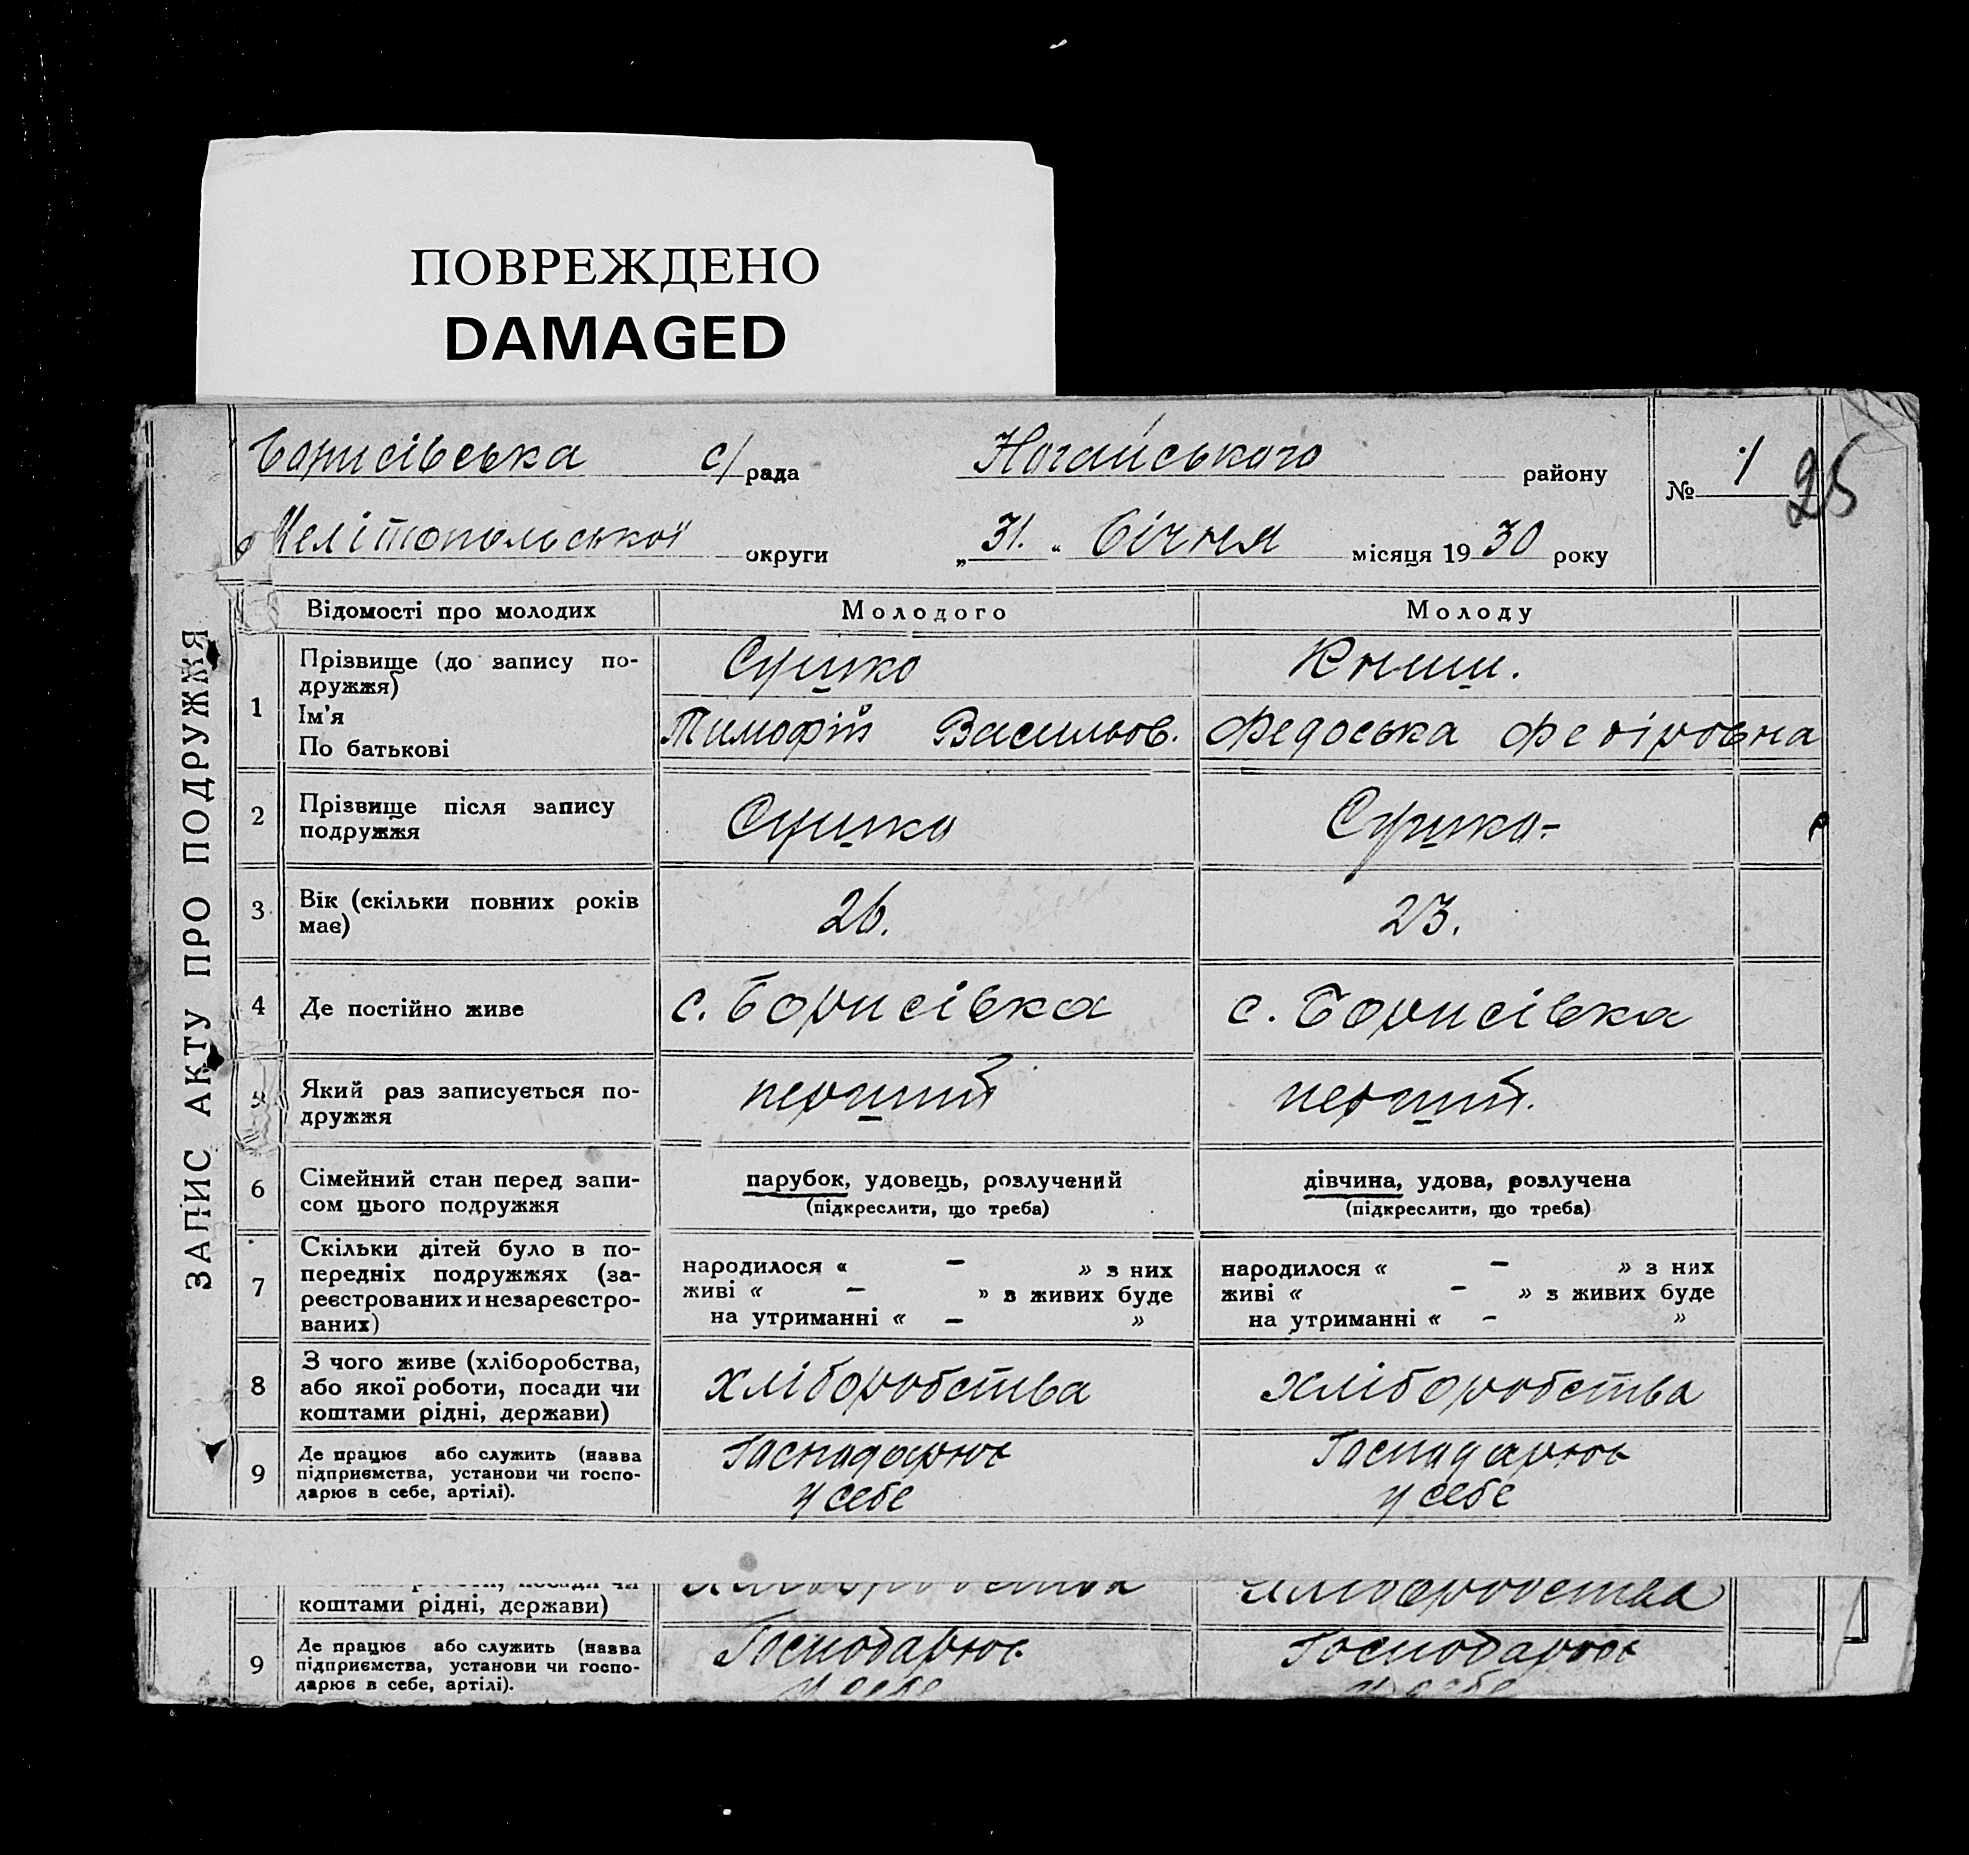 ПОВРЕЖДЕНО
DAMAGED
Борисівська с/рада Ногайського району
№ 1 25
Мелітопольської округи „31.“ Січня місяця 1930 року
ЗАПИС АКТУ ПРО ПОДРУЖЖЯ
Відомості про молодих Молодого Молоду
1 Прізвище (до запису по-
дружжя)
Ім'я
По батькові
Сушко Книш.
Тимофій Васильов. Федоська Федіровна
2 Прізвище після запису
подружжя
Сушко Сушко-
3 Вік (скільки повних років
має)
26. 23.
4 Де постійно живе с. Борисівка с. Борисівка
5 Який раз записується по-
дружжя
перший перший.
6 Сімейний стан перед запи-
сом цього подружжя
парубок, удовець, розлучений
(підкреслити, що треба)
дівчина, удова, розлучена
(підкреслити, що треба)
7 Скільки дітей було в по-
передніх подружжях (за-
реєстрованих и незареєстро-
ваних)
народилося « – » з них
живі « – » з живих буде
на утриманні « – »
народилося « – » з них
живі « – » з живих буде
на утриманні « – »
8 З чого живе (хліборобства,
або якої роботи, посади чи
коштами рідні, держави)
хліборобства хліборобства
9 Де працює або служить (назва
підприємства, установи чи госпо-
дарює в себе, артілі).
Господарює
у себе
Господарює
у себе
коштами рідні, держави)
хліборобства хліборобства
9 Де працює або служить (назва
підприємства, установи чи госпо-
дарює в себе, артілі).
Господарює
у себе
Господарює
у себе